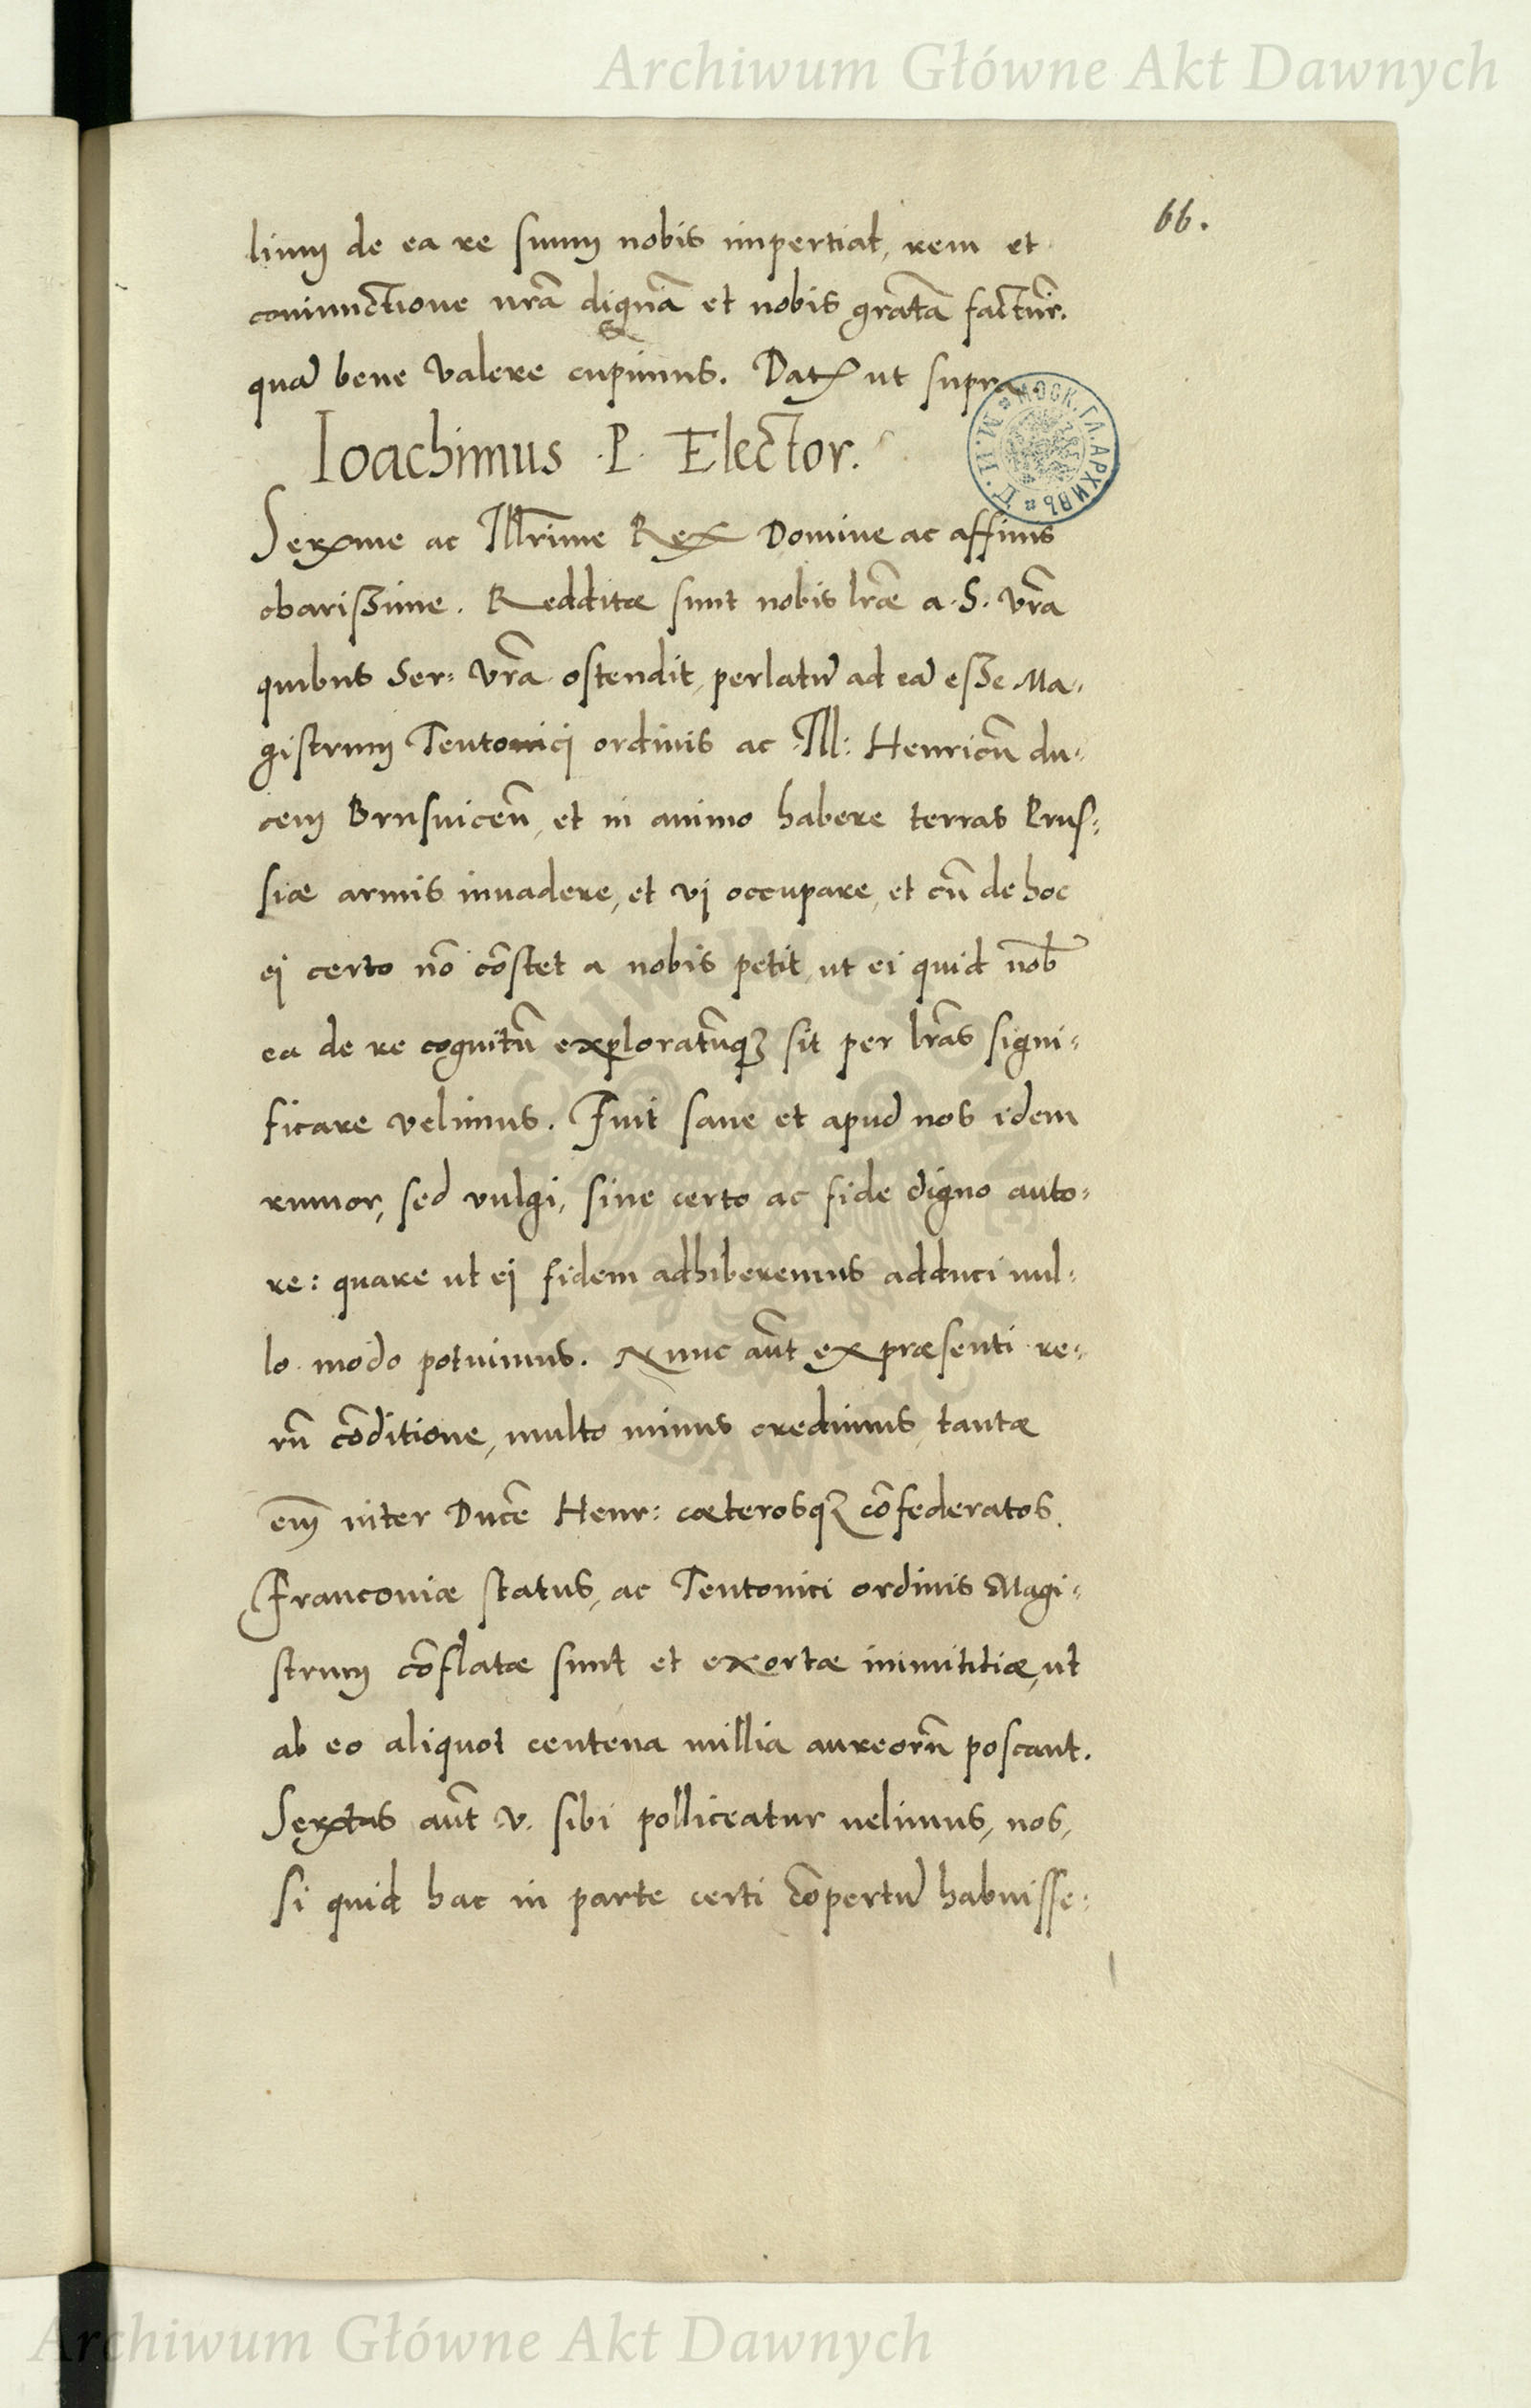 Archiwum Główne Akt Dawnych
66.
lium de ea re suum nobis impertiat, rem et
coniunctione nrã dignã et nobis gratã facturˀ.
quã bene valere cupimus. Datˀ ut supra.
Ioachimus .P. Elector.
МОСК. ГЛ. АРХИВЪ
М. И. Д.
Serme ac Illrime Rex Domine ac affinis
charissime. Redditæ sunt nobis lræ a .S. Vrã
quibus Ser: Vrã ostendit, perlatũ ad eã esse Ma-
gistrum Teutonici ordinis ac Ill: Henricũ du-
cem Brusuiceñ, et in animo habere terras Prus-
siæ armis inuadere, et vi occupare, et cũ de hoc
ei certo nõ cõstet a nobis petit, ut ei quid nob̃
ea de re cognitũ exploratũq3 sit per lrãs signi-
ficare velimus. Fuit sane et apud nos idem
rumor, sed vulgi, sine certo ac fide digno auto-
re: quare ut ei fidem adhiberemus adduci nul-
lo modo potuimus. Nunc aũt ex præsenti re-
rũ cõditione, multo minus credimus, tantæ
em̃ inter Ducẽ Henr: cæterosq3 cõfederatos
Franconiæ status, ac Teutonici ordinis Magi-
strum cõflatæ sunt et exortæ inimititiæ, ut
ab eo aliquot centena millia aureorũ poscant.
Sertas aũt V. sibi polliceatur uelimus, nos,
si quid hac in parte certi cõpertũ habuisse-
ARCHIWUM GŁÓWNE
AKT DAWNYCH
Archiwum Główne Akt Dawnych